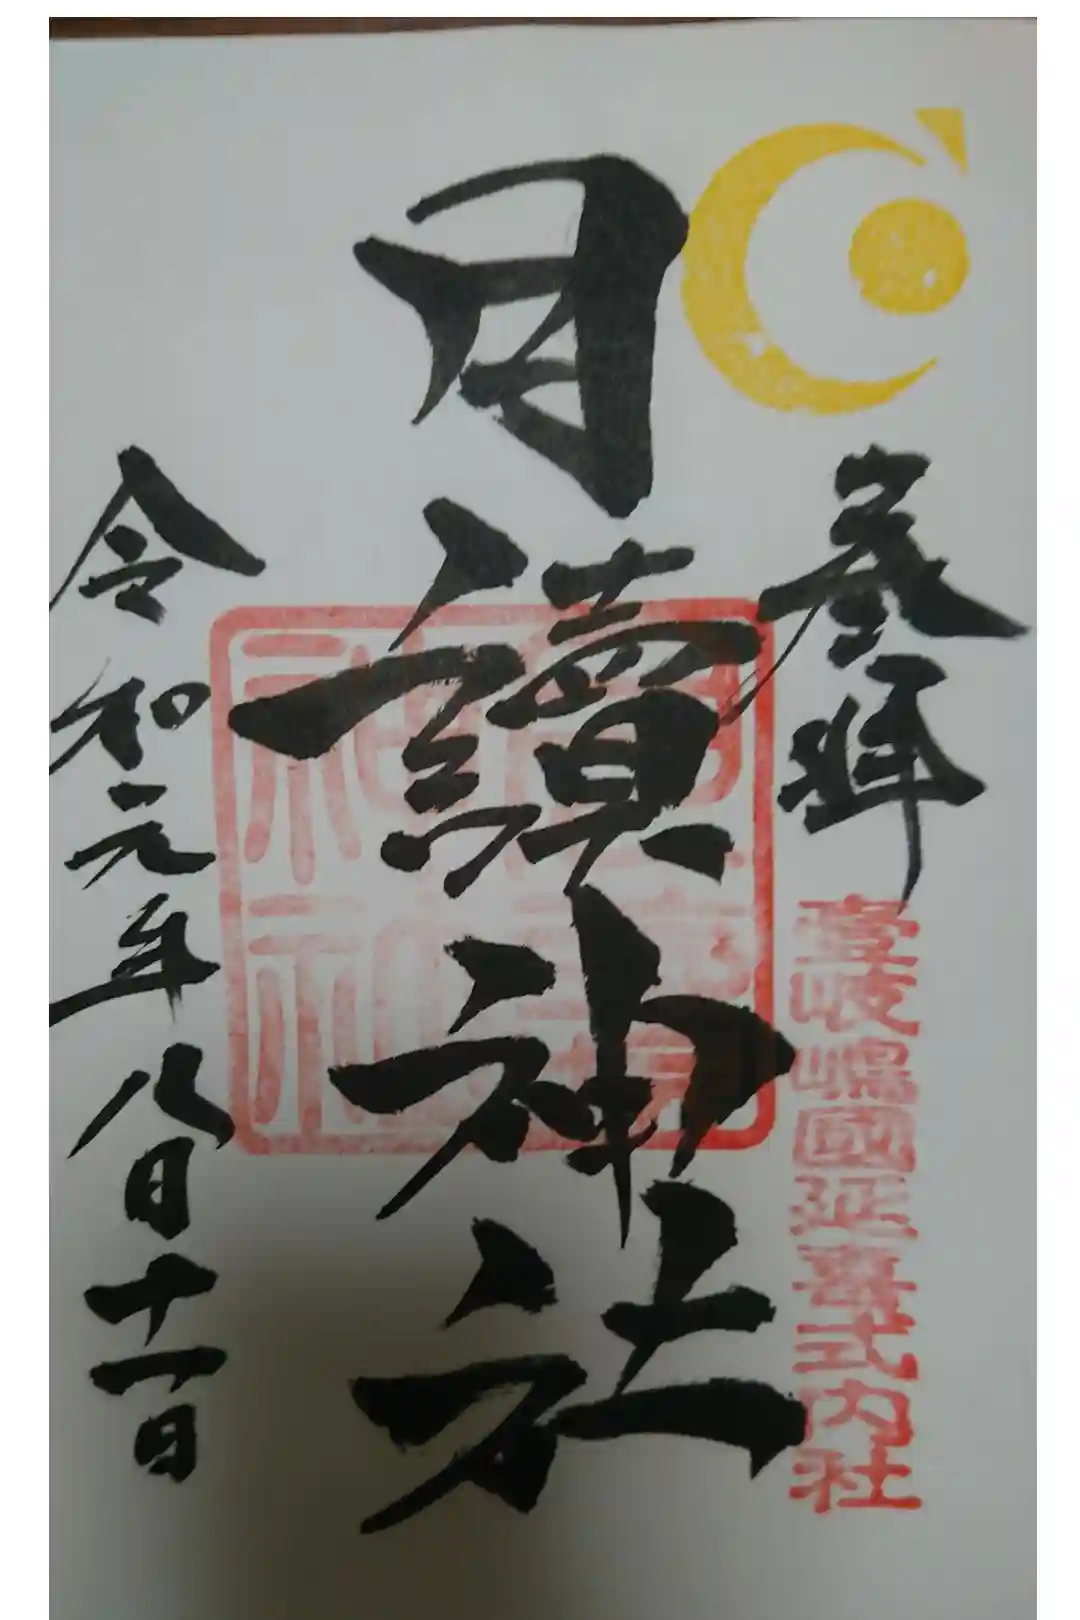 参拝
壹岐嶋國延喜式内社
月讀神社
令和元年八月十一日